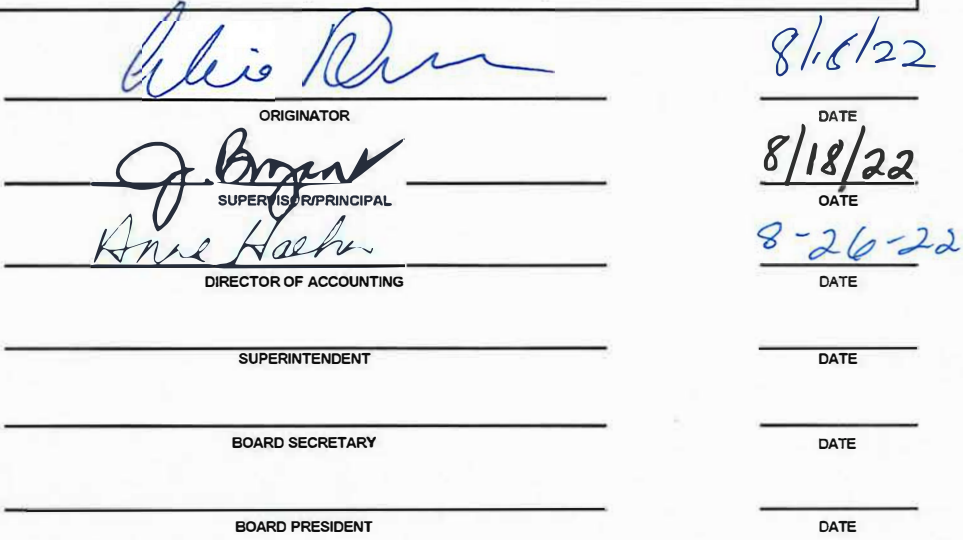 ORIGINATOR DATE
J. Bryant 8/18/22
SUPERVISOR/PRINCIPAL OATE
Anne 8-26-22
DIRECTOR OF ACCOUNTING DATE
SUPERINTENDENT DATE
BOARD SECRETARY DATE
BOARD PRESIDENT DATE